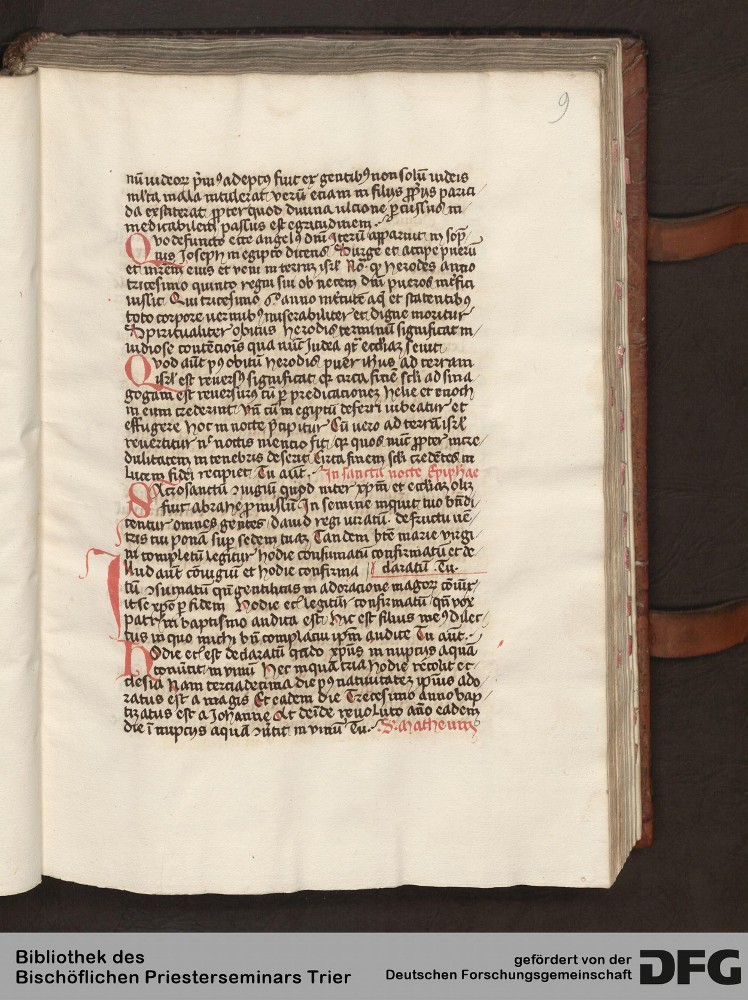 9
nū iudeoꝝ pͥmꝰ adeptꝰ fuit ex gentibꝰ non solū iudeis
mlͭta mala intulerat verū etiam in filijs ꝓpͥjs parici
da exstiterat ꝓpter quod diuina ulcione ꝑcussus in
medicabilem passus est egritudinem .
Quo defuncto ecce angelꝰ dnī Iterū apparuit in sop̄
nis Joseph in egipto dicens Surge et accipe puerū
et mr̄em eius et veni in terrā isrl̄ No͞. qͥ herodes anno
tricesimo quinto regni sui ob necem dnī pueros int̄fici
iussit Qui tricesimo anno int̄cute aq̄ et statentibꝰ
toto corpore vermibꝰ miserabiliter et digne moritur
Spiritualiter obitus herodis terminū significat in
uidiose contēcionis qua nūc Iudea qͣ eccliaȝ seuit
Quod aūt pꝰ obitū herodis puer ihūs ad terram
isrl̄ est reuersꝰ significat qͥ circa finē scl̄i ad sina
gogam est reuersurꝰ cū ꝑ predicacionez helie et enoch
in eum crederint Vn̄ cū in egiptū deferri iubeatur et
effugere hoc in nocte pͥcipitur Cū vero ad terrā isrl̄
reuertitur nͨ noctis mencio fit qͥ quos nūc ꝓpter incre
dulitatem in tenebris deserit Circa finem scl̄i credētes in
lucem fidei recipiet Tu aūt . In sancta nocte Epiphāe
Sacrosanctū ↄiugiū quod inter xp̄m et eccliaȝ oliȝ
fuit abrahe ꝓmissū In semine inquit tuo bn̄di
centur omnes gentes dauid regi iuratū de fructu uē
tris tui ponā suꝑ sedem tuaȝ Tandem bt̄e marie virgi
ni completū legitur hodie consumatū confirmatū et de
Illud aūt cōiugiū et hodie confirma claratū . Tu .
tū ↄsumatū qn̄ gentilitas in adoracione magoꝝ cōiūx
it se xp̄o ꝑ fidem hodie etͣ legitur confirmatū qn̄ vox
patͥs in baptismo audita est Hic est filius meꝰ dilec
tus in quo michi bn̄ complacui ip̄m audite Tu aūt .
Hodie etͣ est declaratū qn̄do xp̄us in nupcijs aquā
conuͥtit in vinū Hec inquā tria hodie recolit ec
clesia Nam terciadecima die pꝰ natiuitateȝ ip̄ius ado
ratus est a magis Et eadem die Trecesimo anno bap
tizatus est a Johanne At deīde reuoluto āno eadem
die ī nupcijs aquā ↄuͥtit in vinū Tu . S. Matheum
Bibliothek des
Bischöflichen Priesterseminars Trier
gefördert von der
Deutschen Forschungsgemeinschaft
DFG